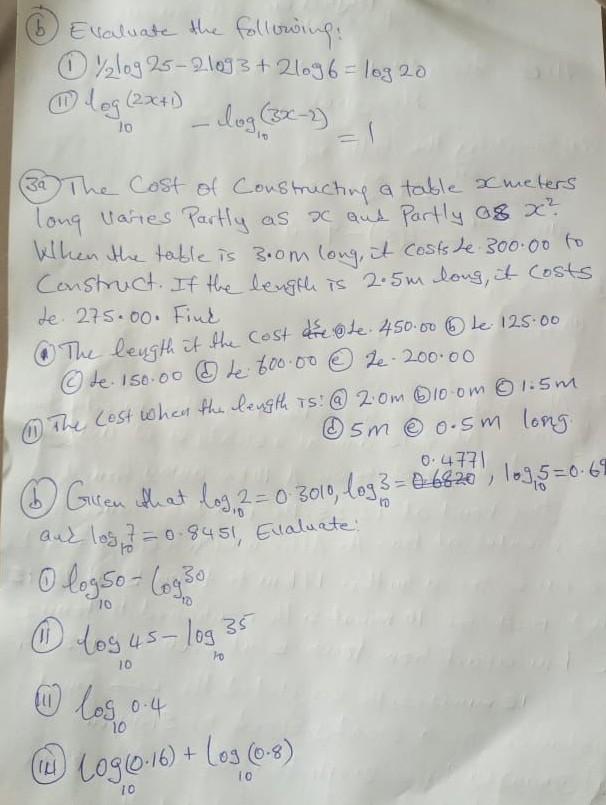 (b) Evaluate the following:
(i) 1/2log25-2log3+2log6=log20
(ii) log₁₀(2x+1) - log₁₀(3x-2) = 1
(3a) The Cost of Constructing a table x meters
long varies Partly as x and Partly as x².
When the table is 3.0m long, it costs Le. 300.00 to
Construct. If the length is 2.5m long, it costs
Le. 275.00. Find
(i) The length if the cost is (a) Le. 450.00 (b) Le 125.00
(c) Le. 150.00 (d) Le. 600.00 (e) Le. 200.00
(ii) The cost when the length is: (a) 2.0m (b) 10.0m (c) 1.5m
(d) 5m (e) 0.5m long.
(b) Given that log₁₀2=0.3010, log₁₀3=0.4771, log₁₀5=0.69
and log₁₀7=0.8451, Evaluate:
(i) log₁₀50-log₁₀30
(ii) log₁₀45-log₁₀35
(iii) log₁₀0.4
(iv) log₁₀(0.16)+log₁₀(0.8)